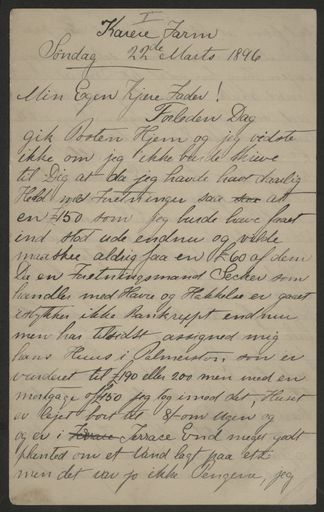 I
Karere Farm
Søndag 22de Marts 1896
Min Egen Kjere Fader!
Forleden Dag
gik Posten Hjem og jeg vidste
ikke om jeg ikke burde skrive
til Dig at da jeg havde havt daarlig
Held med Forretninger saa at
en £150 som jeg burde have faaet
ind stod ude endnu og vilde
maaskee aldrig faa en £60 af dem
la en Forretningsmand Secker som
handler med Havre og Hakkelse er gaaet
istykker ikke Bankrupt endnu
men har tilsidst assigned mig
hans Huus i Palmerston som er
vurderet til £190 eller 200 men med en
mortgage of £150 jeg tog imod det, Huset
er lejet bort til 8/- om Ugen og
og er i Terrace Terrace End meget godt
men det var jo ikke Pengene, jeg